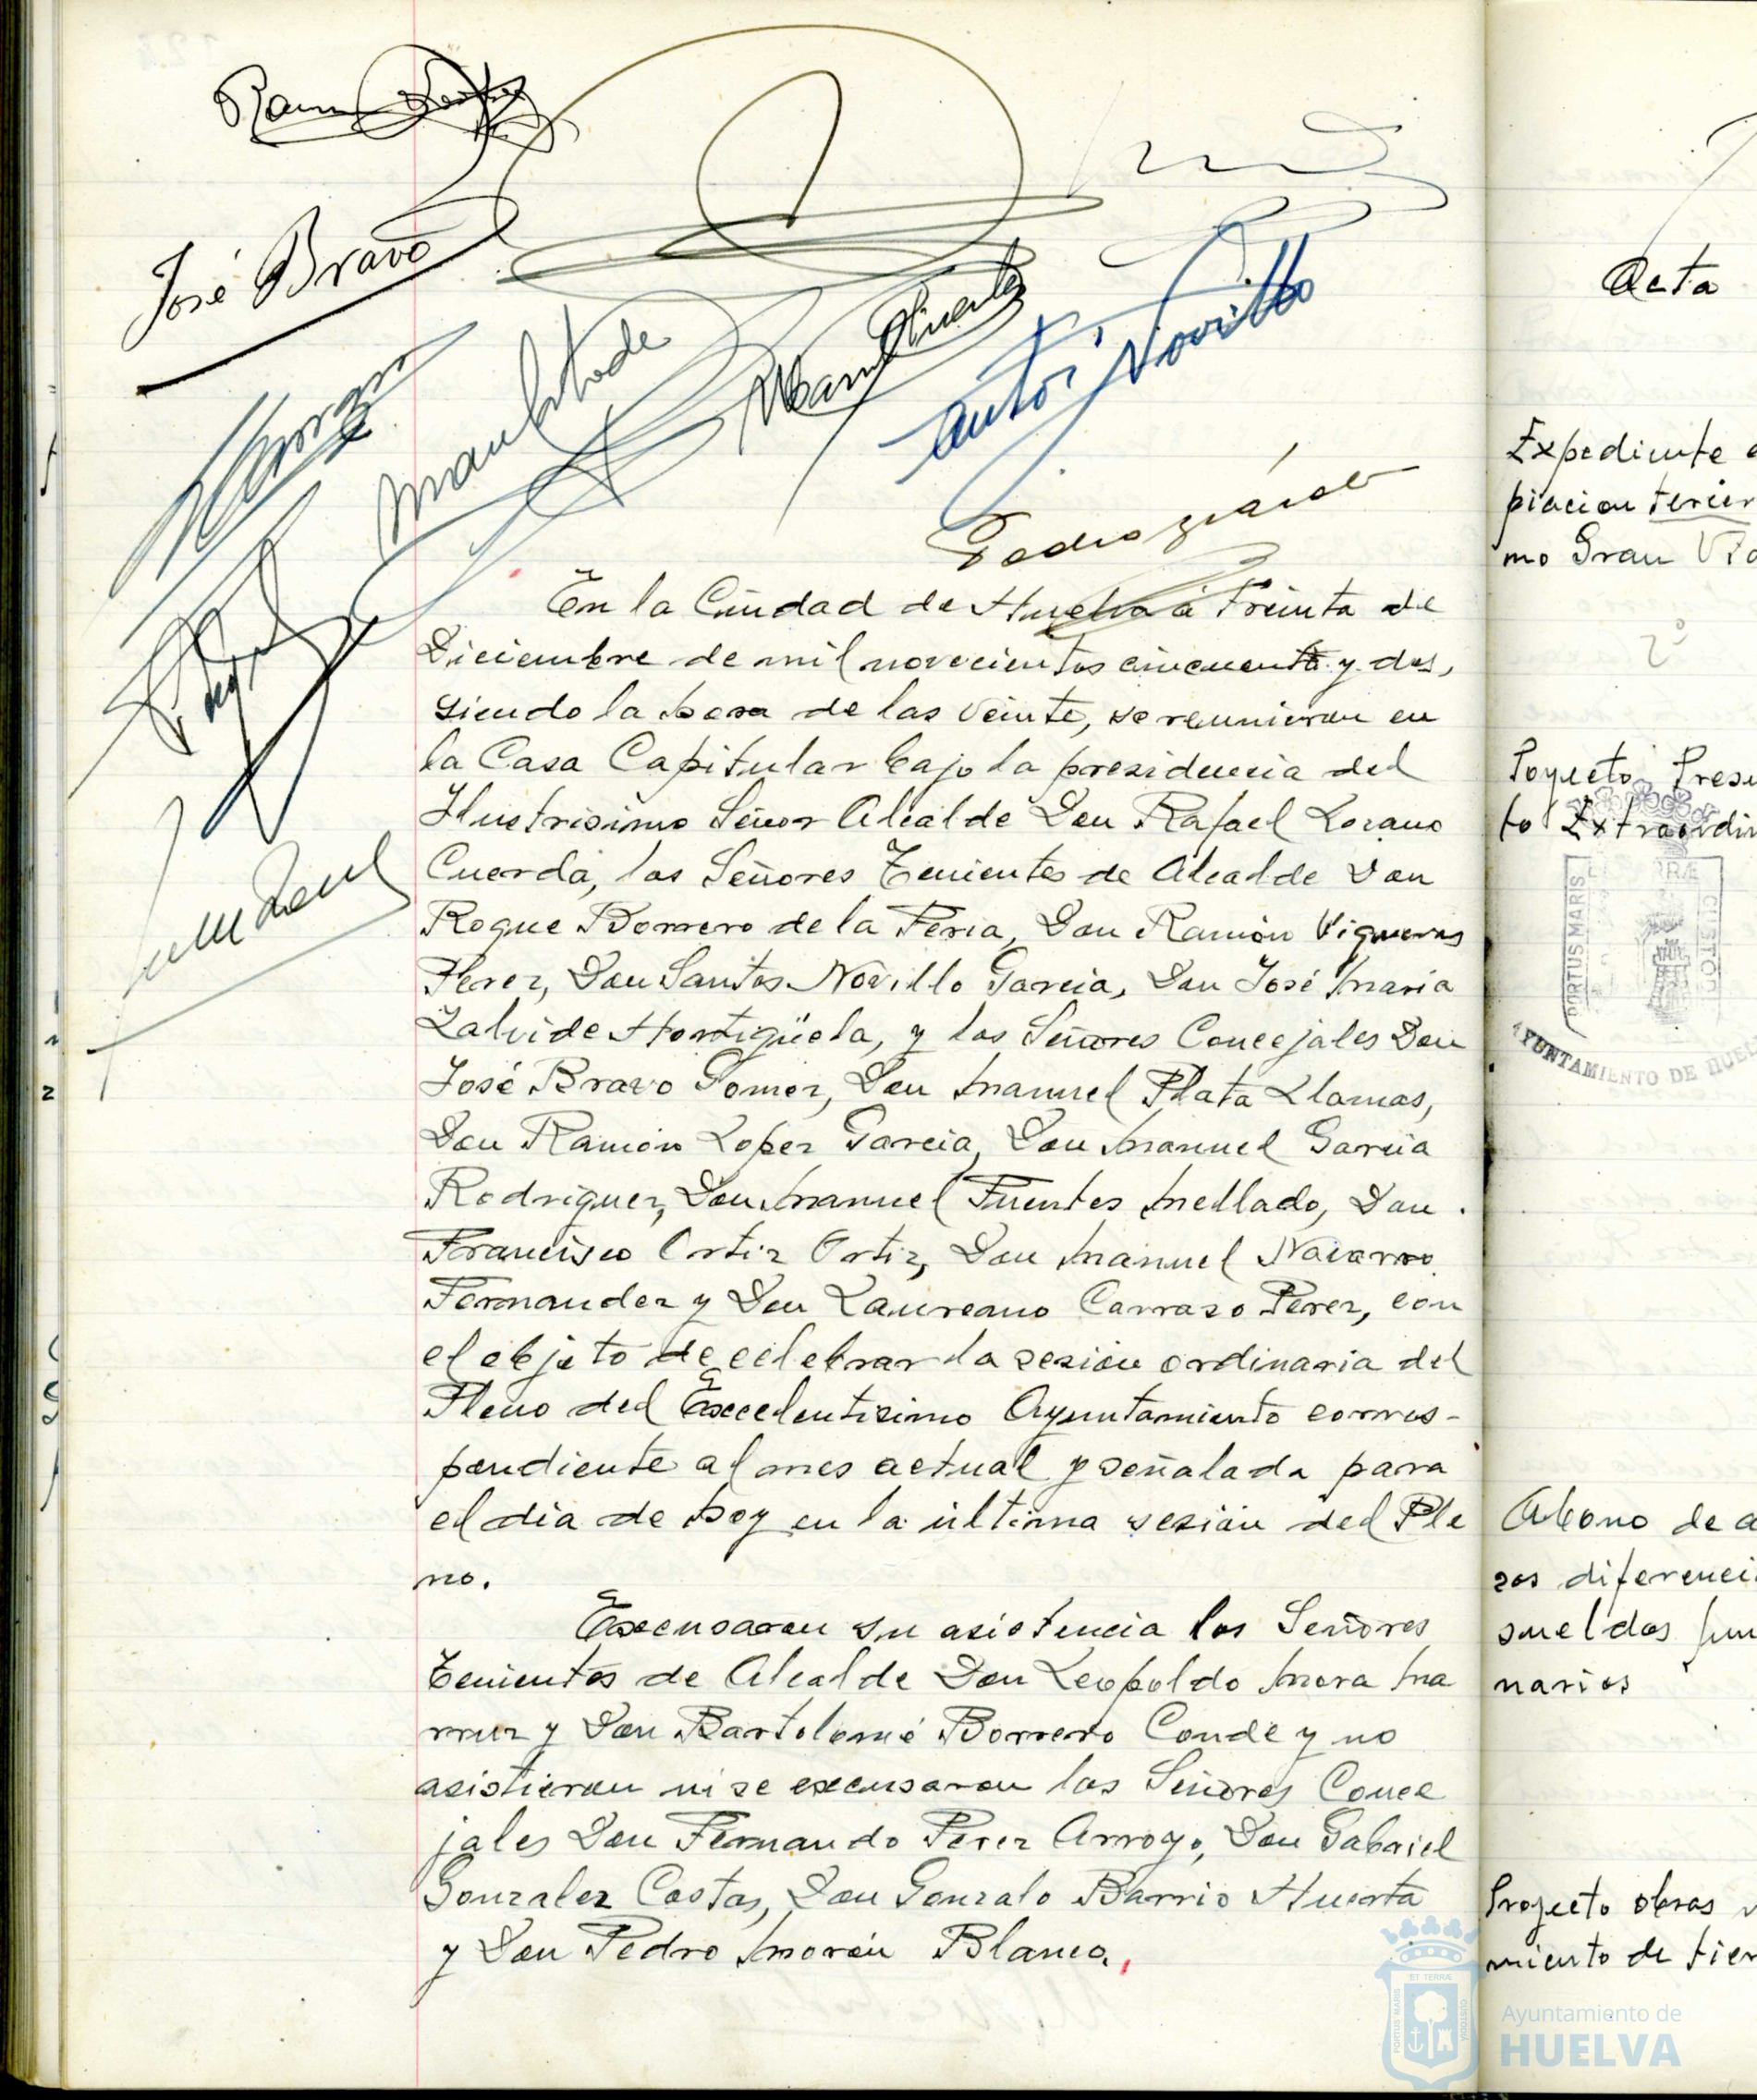 José Bravo
Pedro
En la Ciudad de Huelva a treinta de
Diciembre de mil novecientos cincuenta y dos,
siendo la hora de las veinte, se reunieron en
la Casa Capitular bajo la presidencia del
Ilustrisimo Señor Alcalde Don Rafael Lozano
Cuerda, los Señores Tenientes de Alcalde Don
Roque Borrero de la Feria, Don Ramón Vigueras
Perez, Don Santos Novillo Garcia, Don José Maria
Zalvide Hortigüela, y los Señores Concejales Don
José Bravo Gomez, Don Manuel Plata Llamas,
Don Ramón Lopez Garcia, Don Manuel Garcia
Rodriguez, Don Manuel Fuentes Mellado, Don
Francisco Ortiz Ortiz, Don Manuel Navarro
Fernandez y Don Laureano Carrazo Perez, con
el objeto de celebrar la sesión ordinaria del
Pleno del Excelentisimo Ayuntamiento corres-
pondiente al mes actual y señalada para
el día de hoy en la última sesión del Ple
no.
Excusaron su asistencia los Señores
Tenientes de Alcalde Don Leopoldo Mora Ma
rruz y Don Bartolomé Borrero Conde y no
asistieron ni se excusaron los Señores Conce
jales Don Fernando Perez Arroyo, Don Gabriel
Gonzalez Costas, Don Gonzalo Barrio Huerta
y Don Pedro Morón Blanco.
Acta
Expediente
piacion tercer
mo Gran Via
2º
Proyecto Presu
to Extraordin
PORTUS MARIS
CUSTODI
AYUNTAMIENTO DE HUEL
Abono de a
zos diferenci
sueldos fun
narios
Proyecto obras
miento de tier
Ayuntamiento de
HUELVA